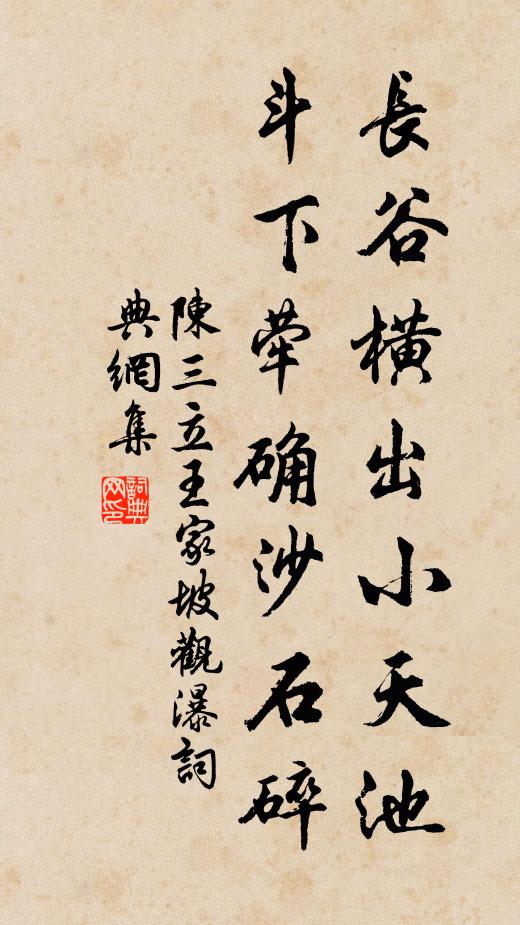 長谷橫出小天池
斗下犖确沙石碎
陳三立王家坡觀瀑詞
典網集
詞典網印